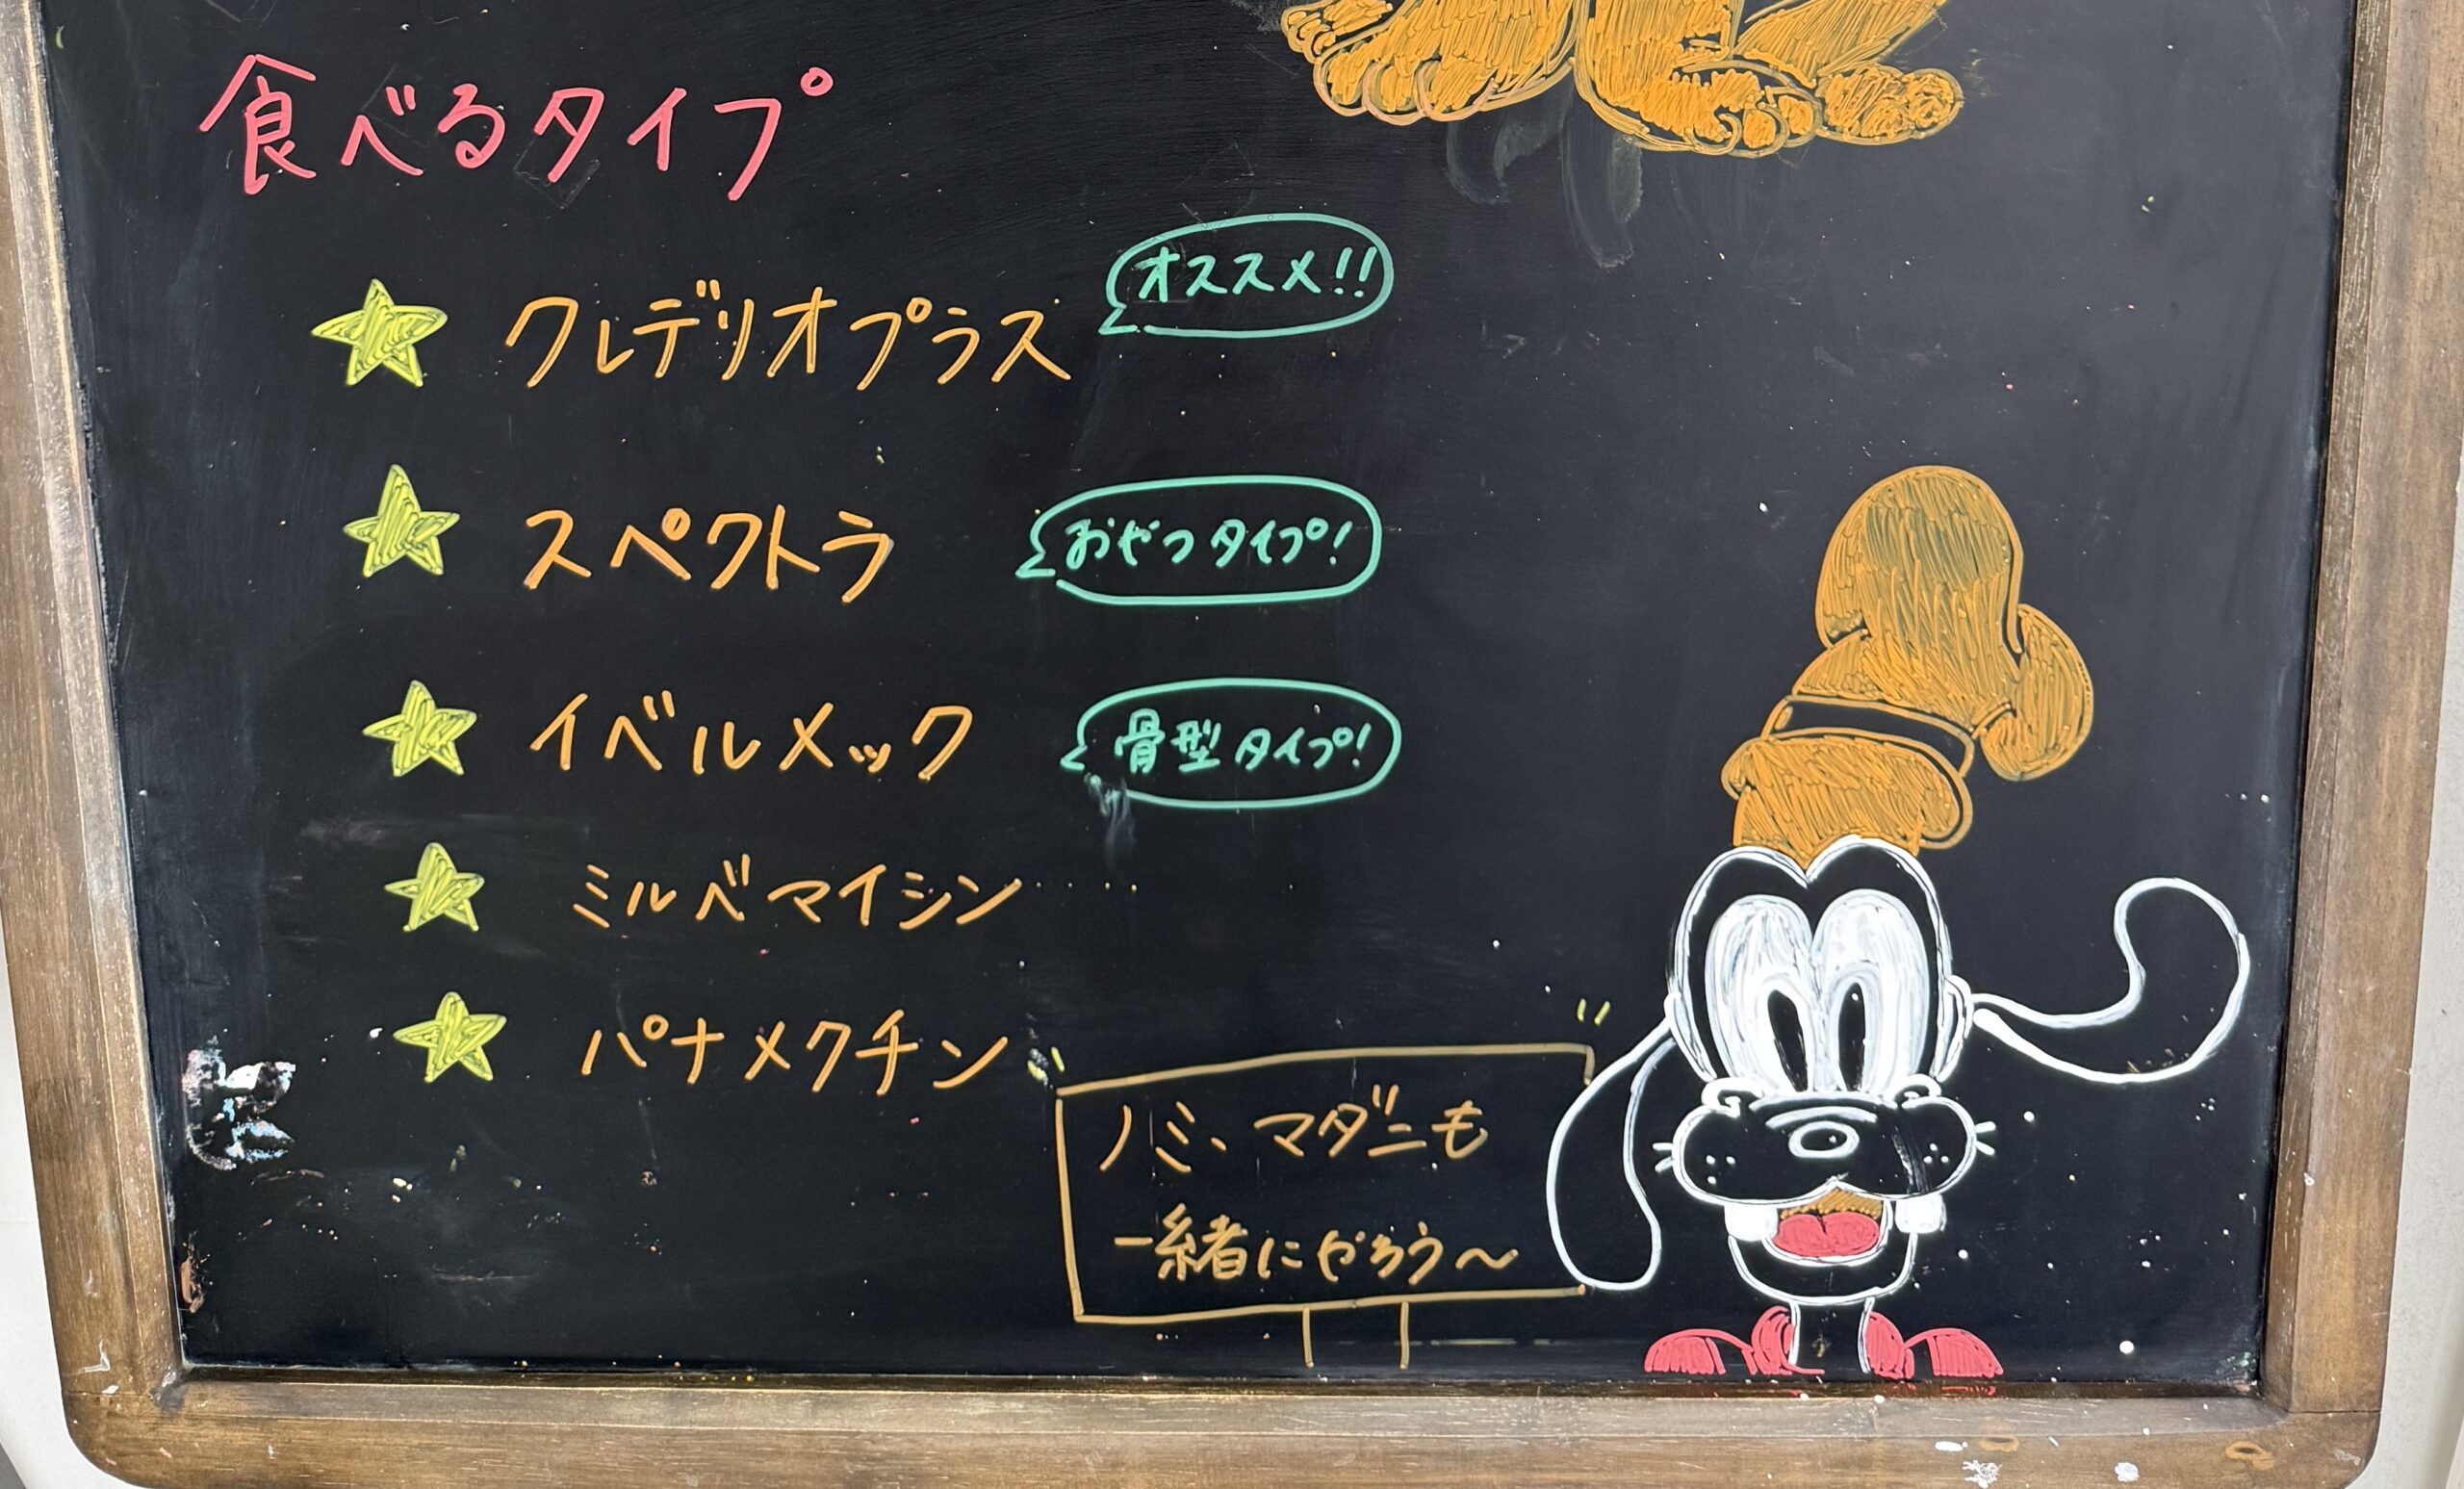 食べるタイプ
クレデリオプラス
オススメ!!
スペクトラ
おやつタイプ!
イベルメック
骨型タイプ!
ミルベマイシン
パナメクチン
ノミ、マダニも
一緒にやろう〜